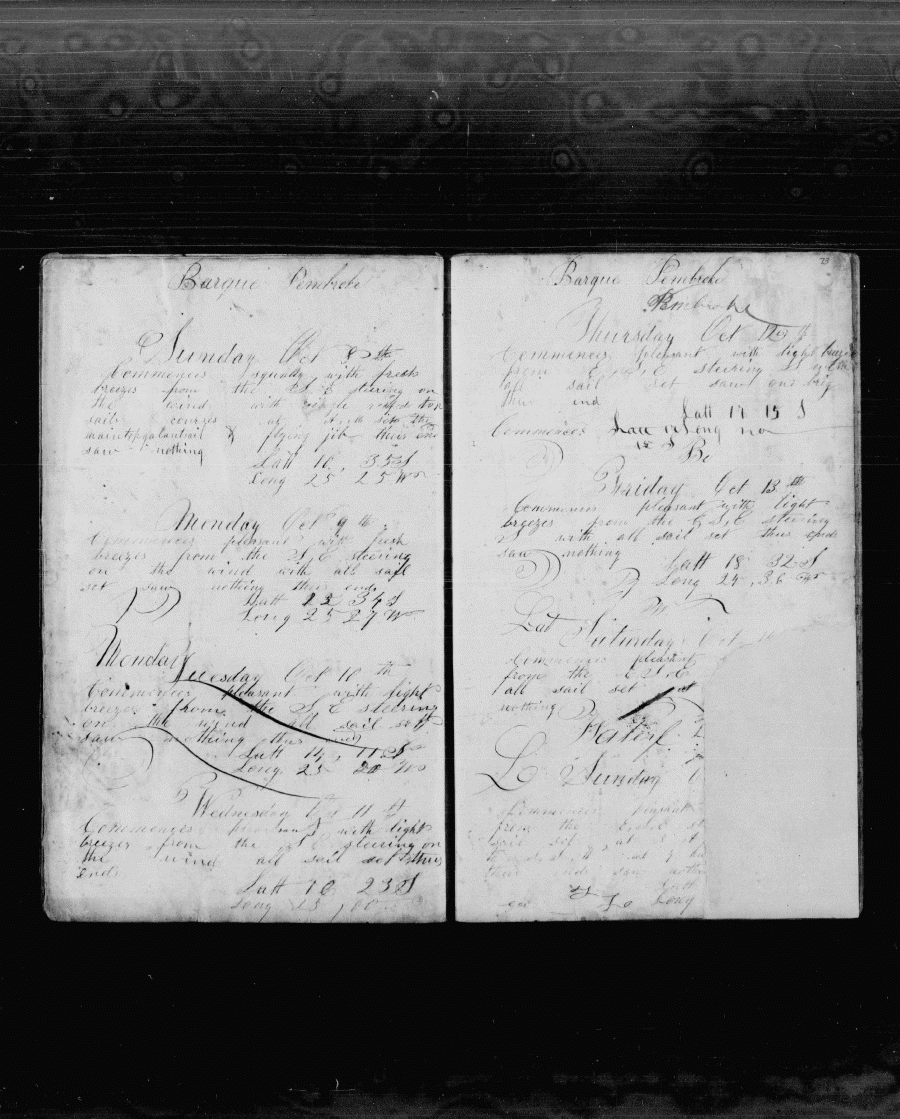 Barque Pembroke
Sunday Oct 8th
Commences squally with fresh
breezes from the S E steering on
the wind with single reefed top
sails courses at set the
maintopgalantsail & flying jib thus end
saw nothing
Latt 10, 35 S
Long 25 25 W
Monday Oct 9th
Commences pleasant with fresh
breezes from the S, E steering
on the wind with all sail
set saw nothing thus ends
Latt 12 34 S
Long 25 27 W
Monday
Tuesday Oct 10th
Commences pleasant with light
breezes from the S, E steering
on the wind all sail set
saw nothing thus ends
Latt 14, 11 S
Long 25 20 W
Wednesday Oct 11th
Commences pleasant with light
breezes from the S E steering on
the wind all sail set thus
ends
Latt 16 23 S
Long 25, 00
Barque Pembroke
Pembroke
Thursday Oct 12th
Commences pleasant with light breezes
from E, S, E steering S with
all sail set saw one brig
thus end
Latt 17 15 S
Commences Long no
15 S
Be
Friday Oct 13th
Commences pleasant with light
breezes from the E S E steering
S with all sail set thus ends
saw nothing
Latt 18 32 S
Long 24, 36 W
Lat Saturday Oct
Commences pleasant
from the E S E
all sail set
nothing
L Sunday
Commences pleasant
from the E S E
sail set at
thus end saw nothing
Latt
Long